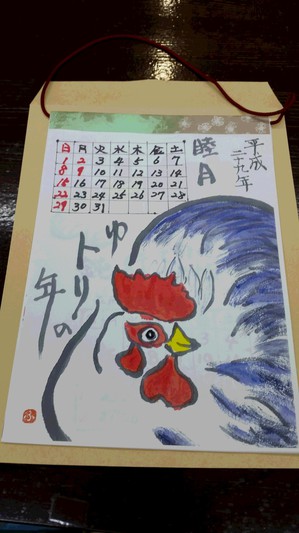 平成
二十九年
睦月
日 月 火 水 木 金 土
1 2 3 4 5 6 7
8 9 10 11 12 13 14
15 16 17 18 19 20 21
22 23 24 25 26 27 28
29 30 31
ゆ
トリ
年の
ふ